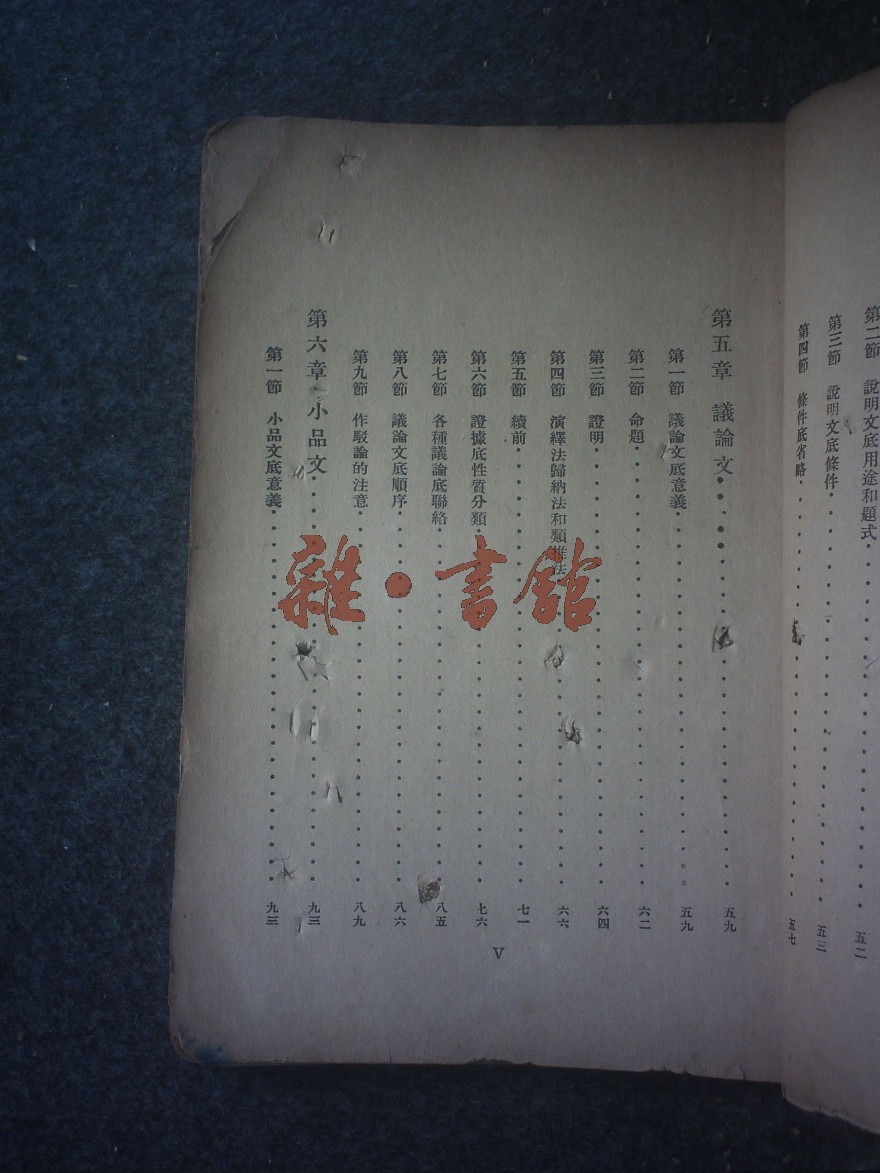 第二節 說明文底用途和題式 五二
第三節 說明文底條件 五三
第四節 條件底省略 五七
第五章 議論文 五九
第一節 議論文底意義 五九
第二節 命題 六二
第三節 證明 六四
第四節 演釋法歸納法和類推法 六六
第五節 續前 七一
第六節 證據底性質分類 七六
第七節 各種議論底聯絡 八五
第八節 議論文底順序 八六
第九節 作駁論的注意 八九
第六章 小品文 九三
第一節 小品文底意義 九三
V
雜·書館